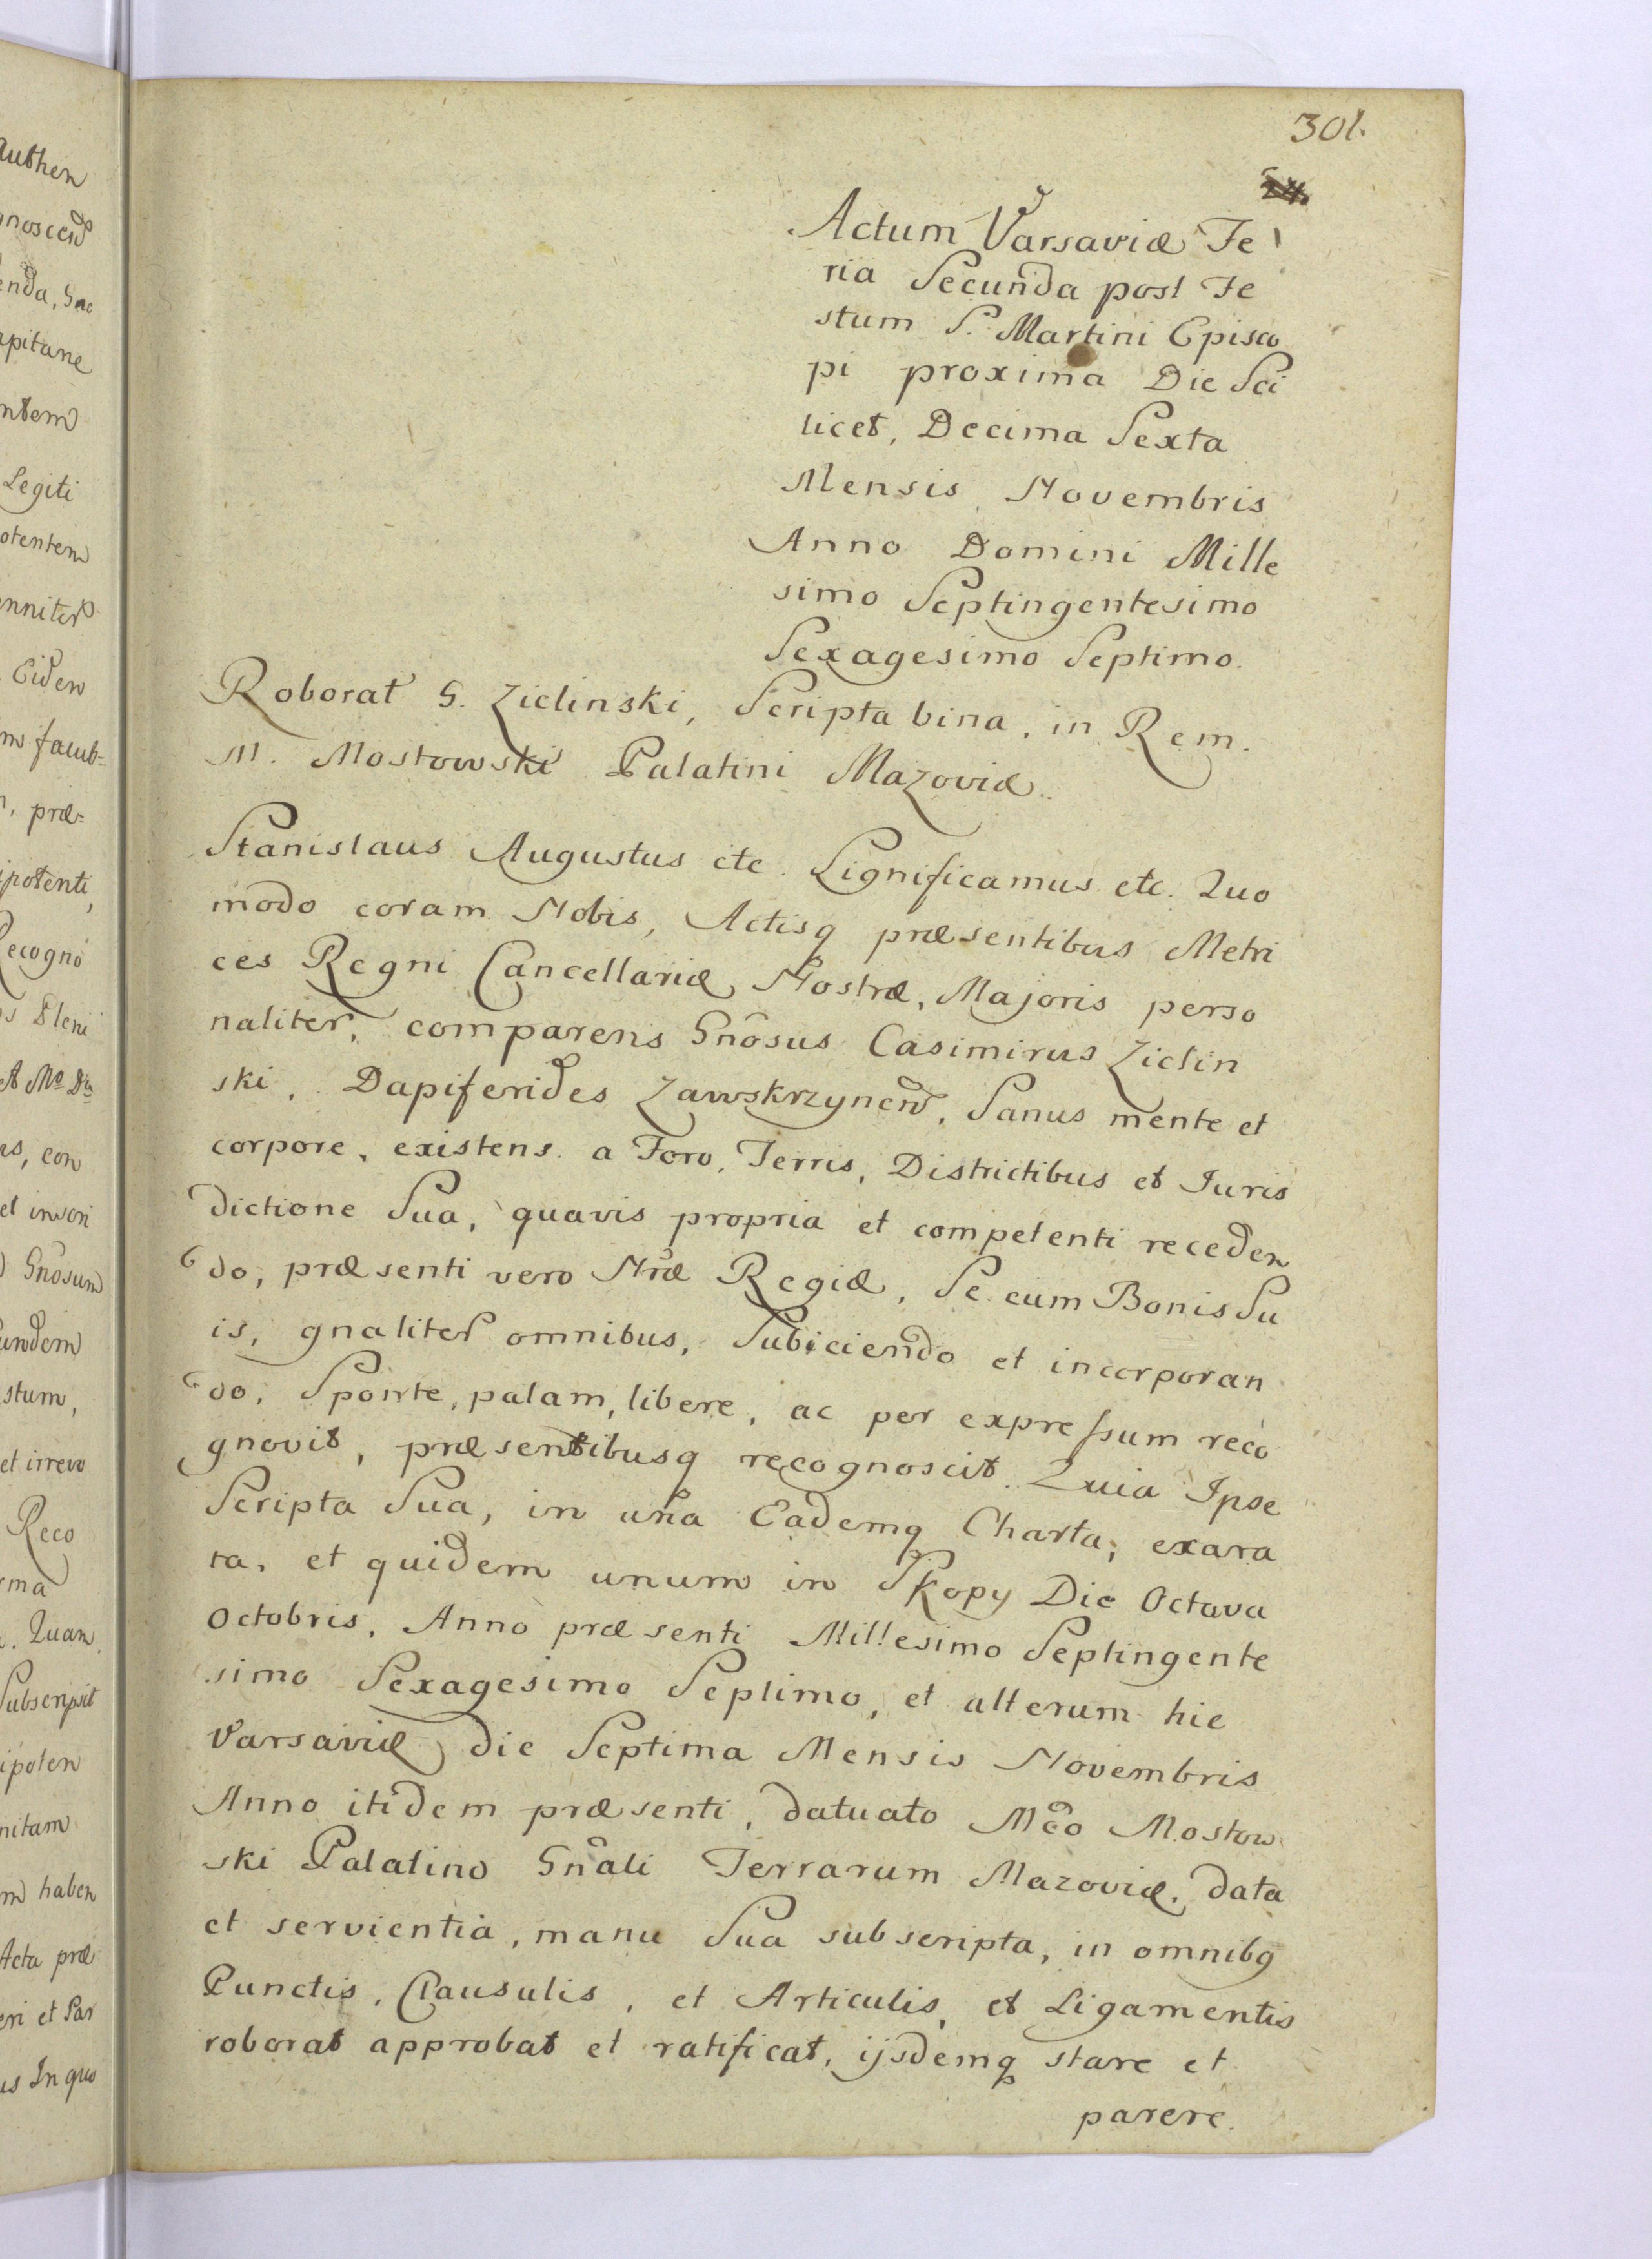 301.
24.
Actum Varsaviæ Fe
ria Secunda post Fe
stum S. Martini Episco
pi proxima Die Sci
licet, Decima Sexta
Mensis Novembris
Anno Domini Mille
simo Septingentesimo
Sexagesimo Septimo.
Roborat G. Zielinski, Scripta bina, in Rem.
M. Mostowski Palatini Mazoviæ.
Stanislaus Augustus etc. Significamus etc. Quo
modo coram Nobis, Actisq præsentibus Metri
ces Regni Cancellariæ Nostræ, Majoris perso
naliter, comparens Gnõsus Casimirus Zielin
ski, Dapiferides Zawskrzynen, Sanus mente et
corpore, existens. a Foro, Terris, Districtibus et Juris
dictione Sua, quavis propria et competenti receden
do, præsenti vero Nræ Regiæ, Se cum Bonis Su
is, gnaliter omnibus, Subiciendo et incorporan
do, Sponte, palam, libere, ac per expressum reco
gnovit, præsentibusq recognoscit. Quia Ipse
Scripta Sua, in una Eademq Charta, exara
ta, et quidem unum in Skopy Die Octava
Octobris, Anno præsenti Millesimo Septingente
simo Sexagesimo Septimo, et alterum hic
Varsaviæ die Septima Mensis Novembris
Anno itidem præsenti, datuato Mco Mostow
ski Palatino Gnãli Terrarum Mazoviæ, data
et servientia, manu Sua subscripta, in omnibq
Punctis, Clausulis, et Articulis, et Ligamentis
roborat approbat et ratificat, ijsdemq stare et
parere.